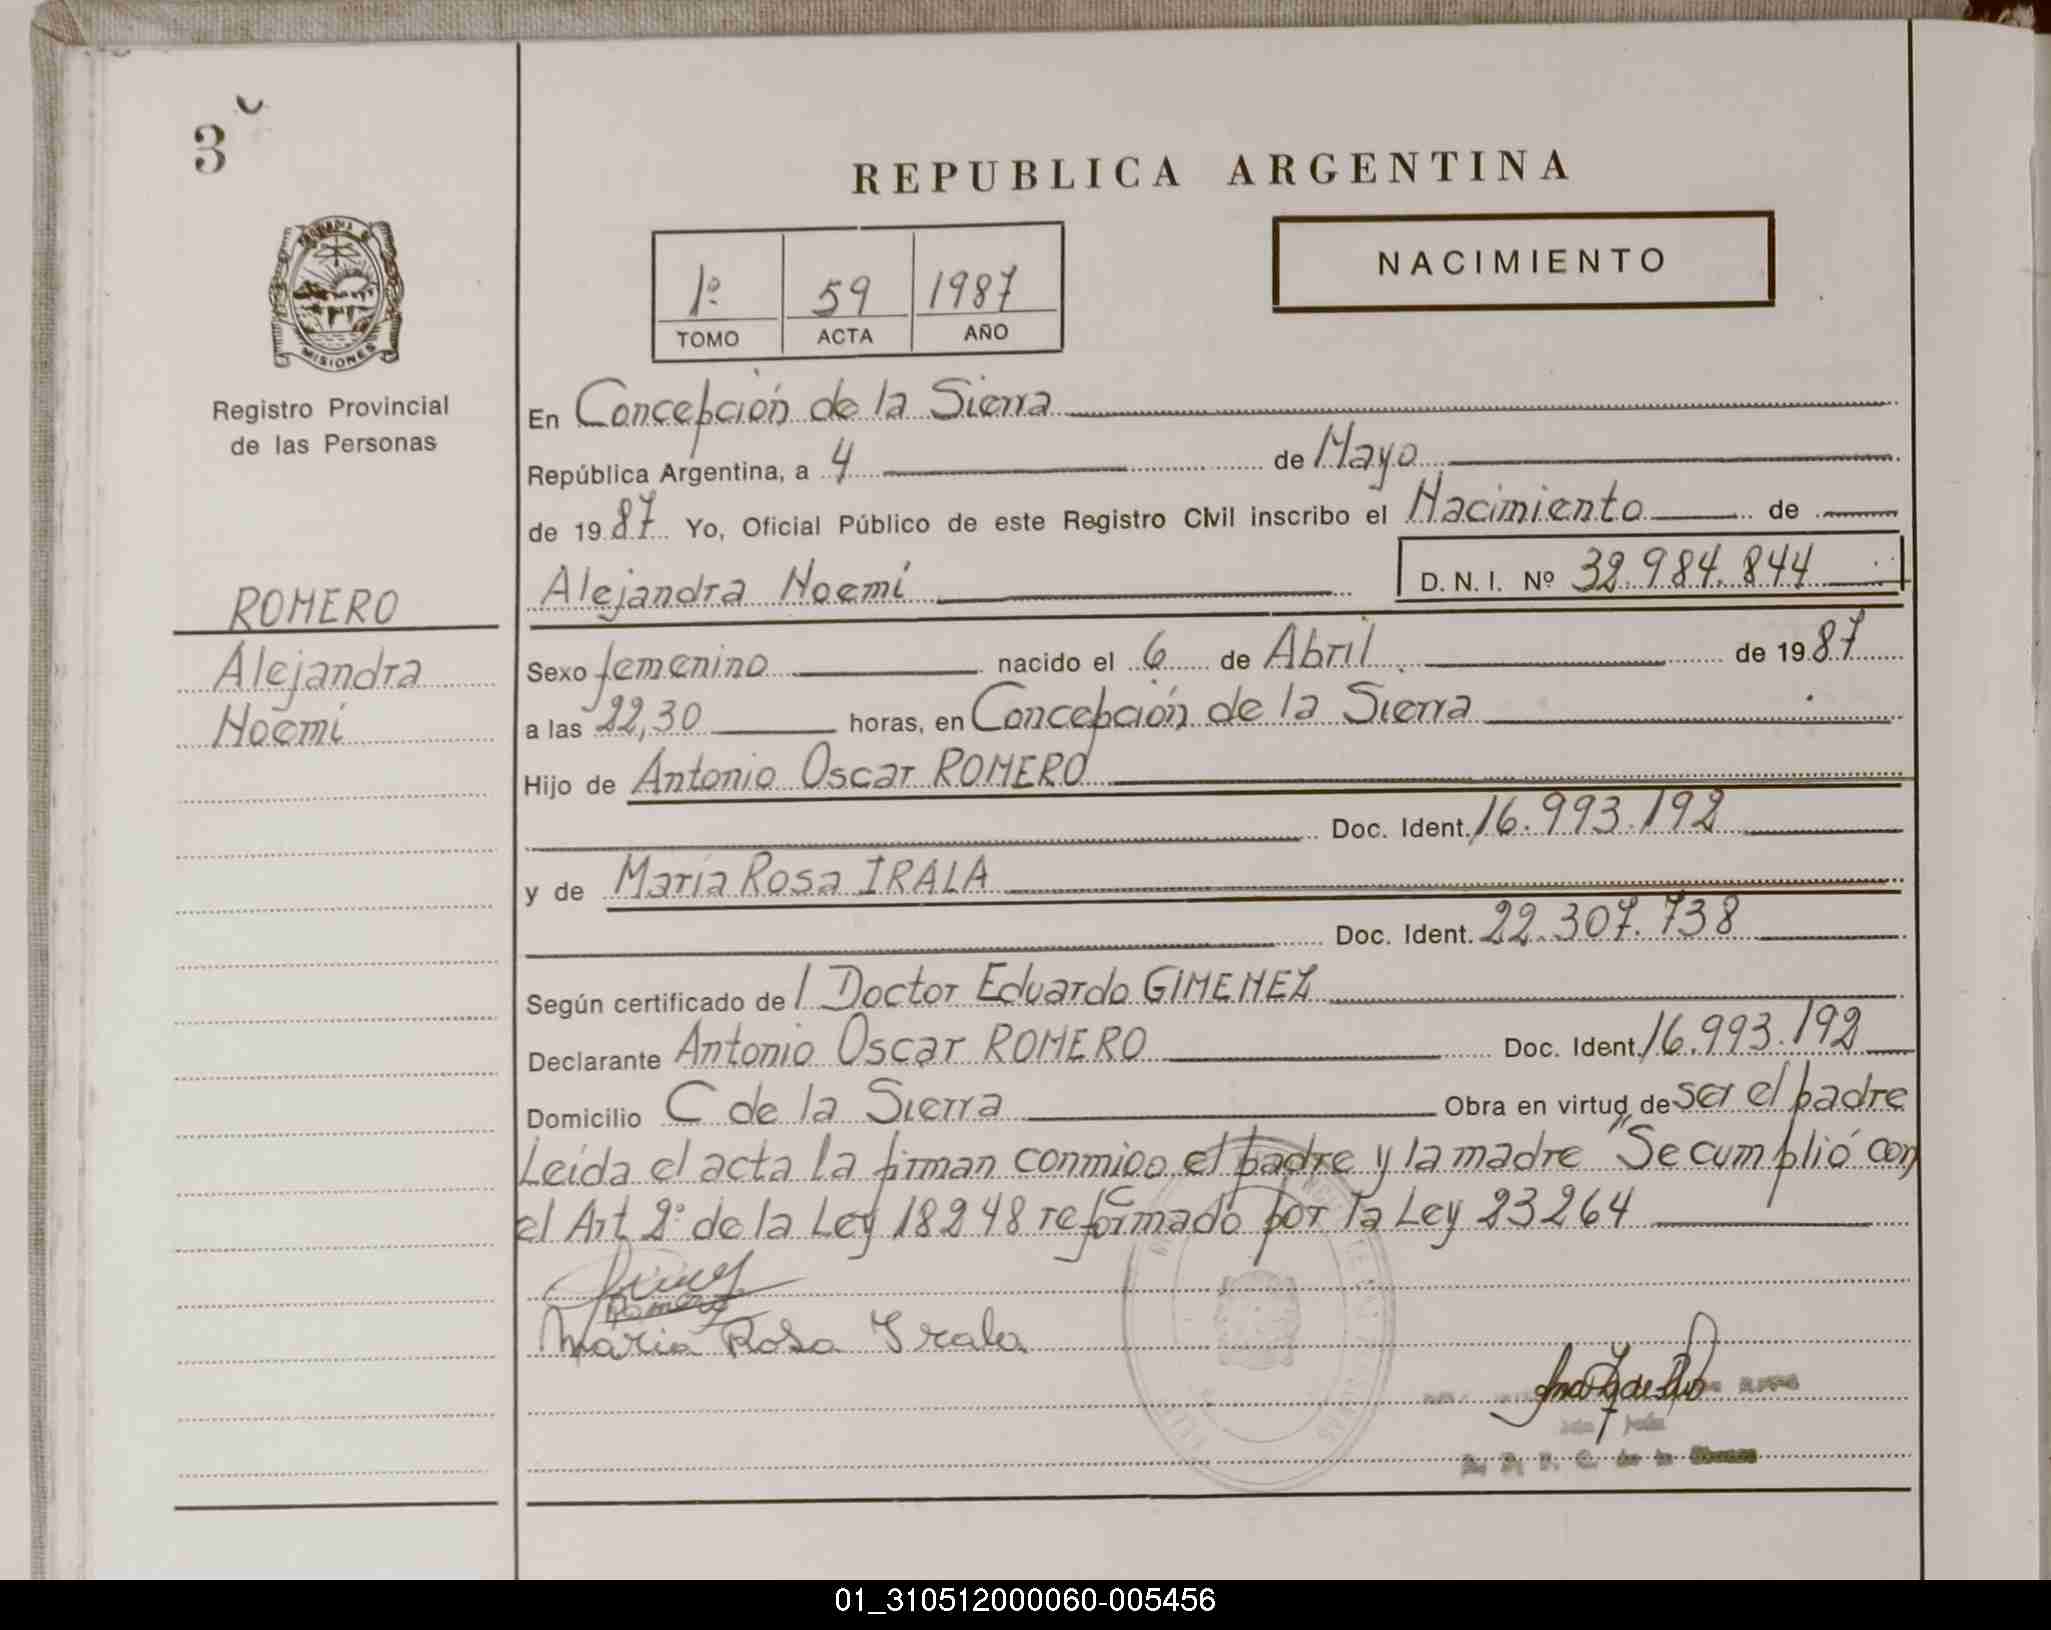 3
REPUBLICA ARGENTINA
PROVINCIA DE
MISIONES
Registro Provincial
de las Personas
1º 59 1987
TOMO ACTA AÑO
NACIMIENTO
En Concepción de la Sierra
República Argentina, a 4 de Mayo
de 1987 Yo, Oficial Público de este Registro Civil inscribo el Nacimiento de
Alejandra Noemí D. N. I. Nº 32.984.844
ROMERO
Alejandra
Noemí
Sexo femenino nacido el 6 de Abril de 1987
a las 22,30 horas, en Concepción de la Sierra
Hijo de Antonio Oscar ROMERO
Doc. Ident. 16.993.192
y de María Rosa IRALA
Doc. Ident. 22.307.738
Según certificado del Doctor Eduardo GIMENEZ
Declarante Antonio Oscar ROMERO Doc. Ident. 16.993.192
Domicilio C de la Sierra Obra en virtud de ser el padre
Leída el acta la firman conmigo el padre y la madre "Se cumplió con
el Art 2º de la Ley 18248 reformado por la Ley 23264
Romero
Maria Rosa Irala
01_310512000060-005456